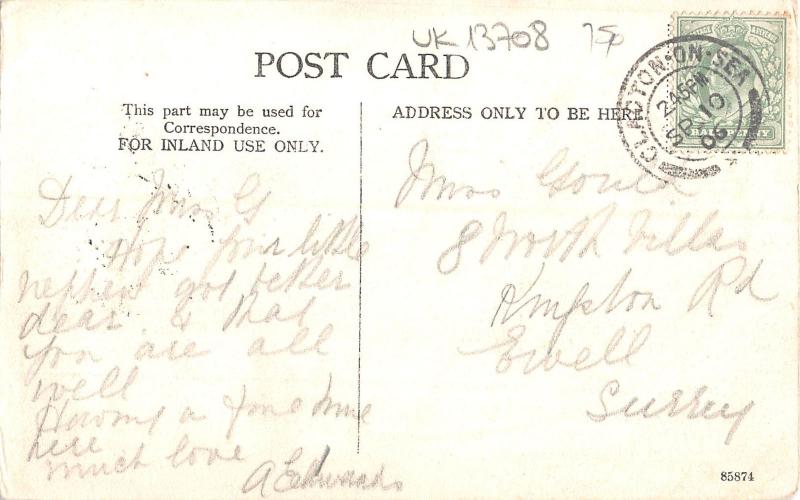 UK 13708 75p
POST CARD
This part may be used for
Correspondence.
FOR INLAND USE ONLY.
ADDRESS ONLY TO BE HERE
CLACTON-ON-SEA
2.45PM
SP 10
06
HALFPENNY
Dear Miss G
Hope your little
nephew got better
dear & that
you are all
well
Having a fine time
here
much love
A Edwards
Miss Gould
8 North Villas
Kingston Rd
Ewell
Surrey
85874